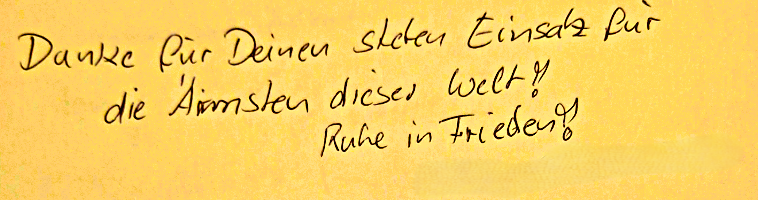 Danke für Deinen steten Einsatz für
die Ärmsten dieser Welt!
Ruhe in Frieden!